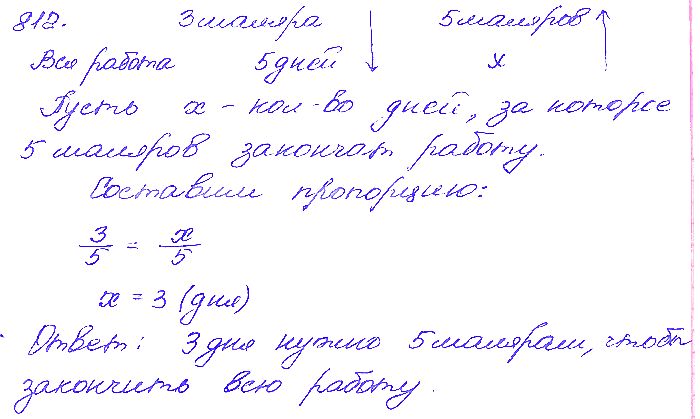 812. 3 маляра 5 маляров
Вся работа 5 дней x
Пусть x - кол-во дней, за которое
5 маляров закончат работу.
Составим пропорцию:
3/5 = x/5
x = 3 (дня)
Ответ: 3 дня нужно 5 малярам, чтобы
закончить всю работу.